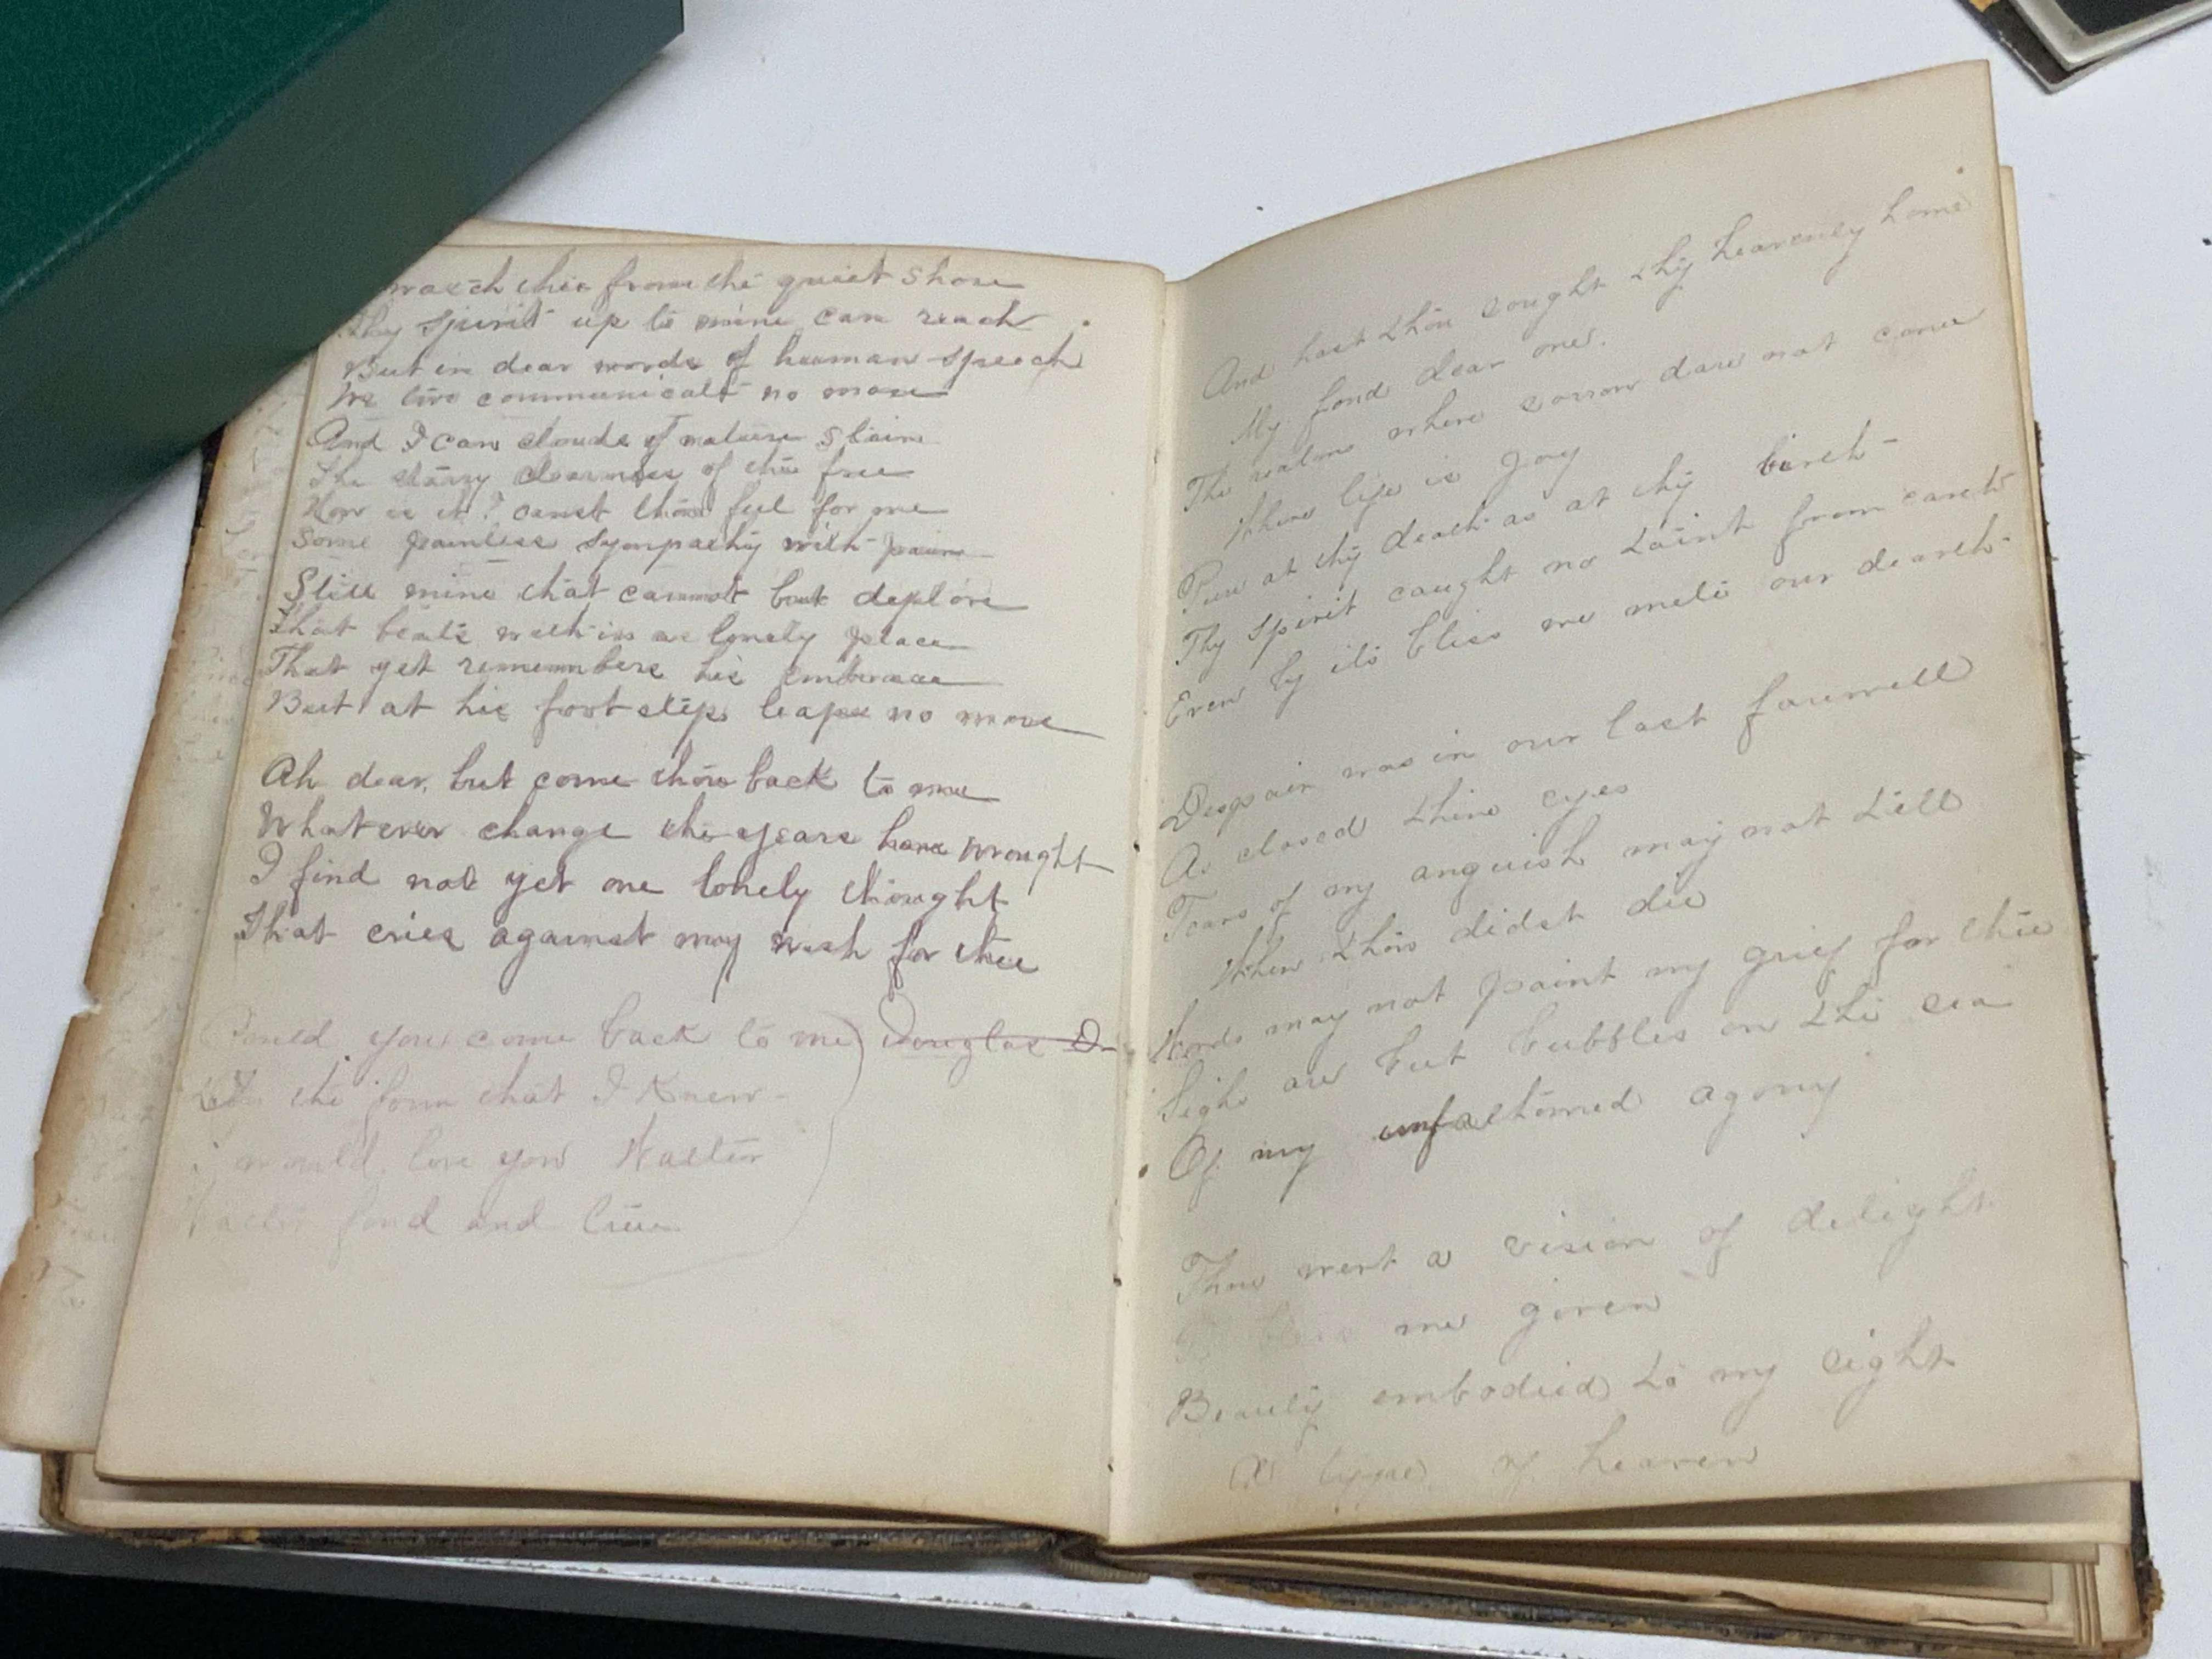 watch thee from the quiet shore
Thy spirit up to mine can reach
But in dear words of human speech
We two communicate no more
And I can clouds of nature stain
The starry clearness of the free
How is it? canst thou feel for me
Some painless sympathy with pain
Still mine that cannot but deplore
That beats within a lonely place
That yet remembers his embrace
But at his footstep leaps no more
Ah dear, but come thou back to me
Whatever change the years have wrought
I find not yet one lonely thought
That cries against my wish for thee
Could you come back to me Douglas D
the form that I knew
i would love you Walter
fond and true
And hast thou sought thy heavenly home
My fond dear one.
The realms where sorrow dare not come
Where life is Joy
Pure at thy death as at thy birth
Thy spirit caught no taint from earth
Even by its bliss we mete our dearth
Despair was in our last farewell
As closed thine eyes
Tears of my anguish may not tell
When thou didst die
Words may not paint my grief for thee
Sighs are but bubbles on the sea
Of my unfathomed agony
Thou wert a vision of delight
To bless me given
Beauty embodied to my sight
A type of heaven